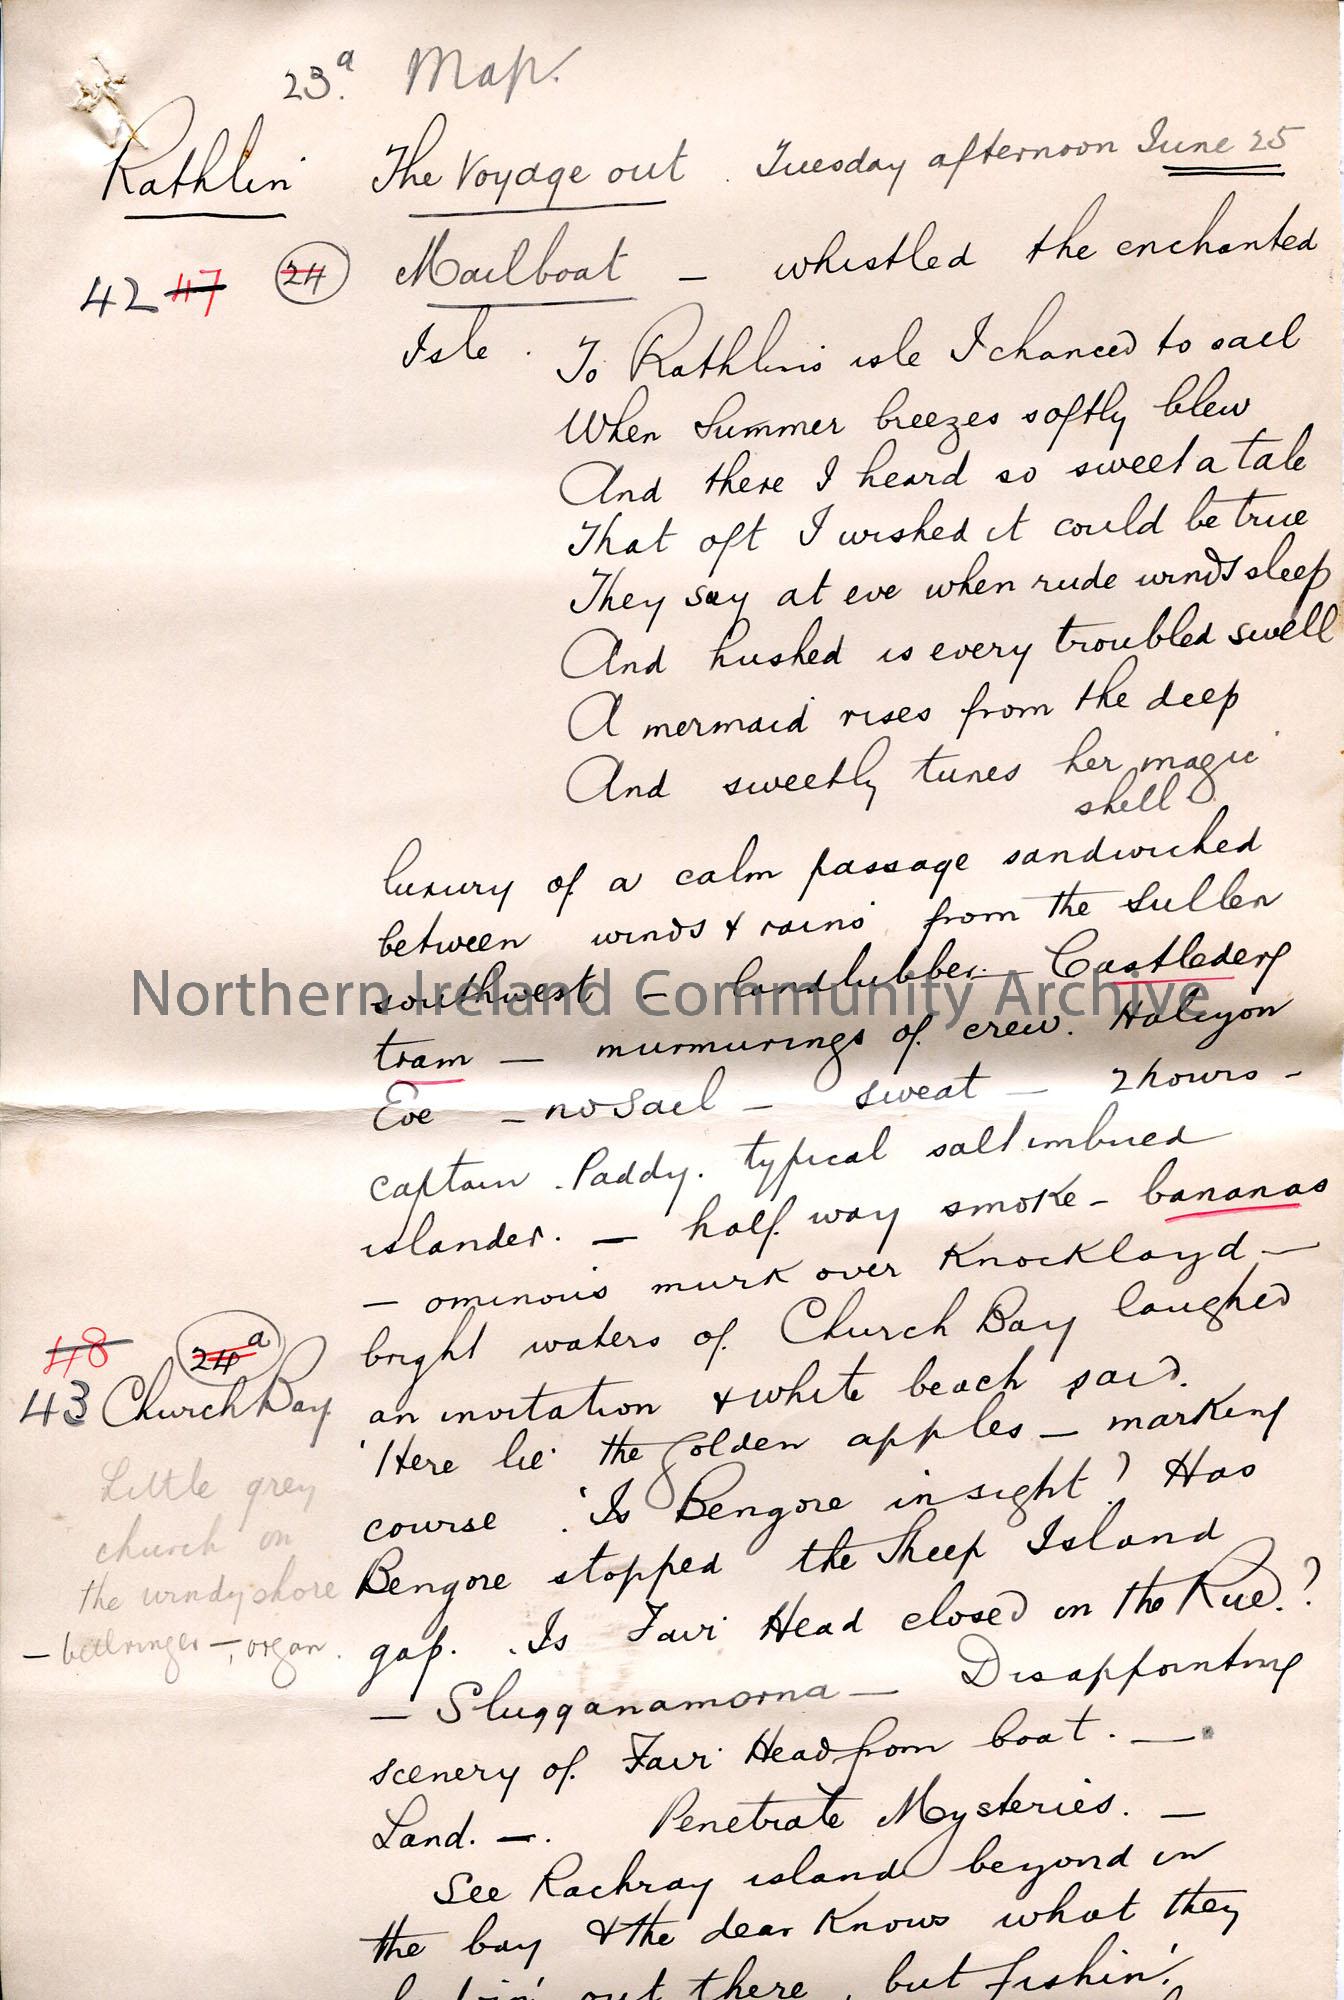 23.a Map.
Rathlin The Voyage out. Tuesday afternoon June 25
42 47 24 Mailboat — whistled the enchanted
Isle. To Rathlin's isle I chanced to sail
When Summer breezes softly blew
And there I heard so sweet a tale
That oft I wished it could be true
They say at eve when rude winds sleep
And hushed is every troubled swell
A mermaid rises from the deep
And sweetly tunes her magic
shell
luxury of a calm passage sandwiched
between winds & rains from the sullen
southwest — landlubber — Castlederg
tram — murmurings of crew. Halcyon
Eve — no Sail — sweat — 2 hours —
captain. Paddy. typical salt imbued
islander. — half way smoke — bananas
— ominous murk over Knocklayd —
bright waters of Church Bay laughed
48 24a
43 Church Bay
an invitation & white beach said.
'Here lie the golden apples — marking
course. 'Is Bengore in sight? Has
Bengore stopped the Sheep Island
gap. Is Fair Head closed on the Rue.?
Little grey
church on
the windy shore
— bellringer —, organ.
— Slugganamorna — Disappointing
scenery of Fair Head from boat. —
Land. —. Penetrate Mysteries. —
See Rachray island beyond in
the bay & the dear Knows what they
out there, but fishin'.
Northern Ireland Community Archive